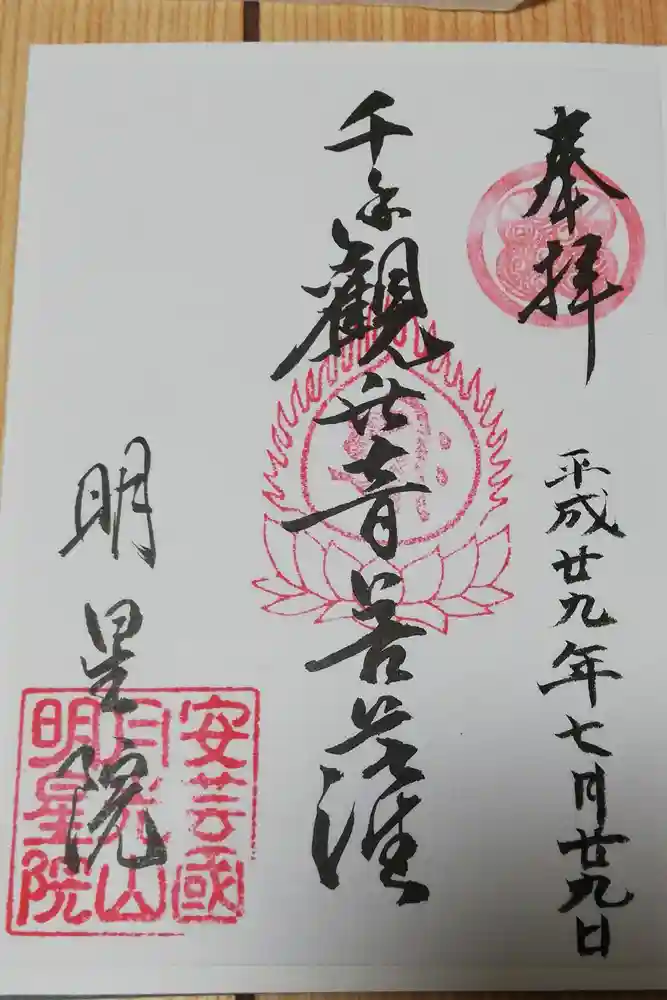 奉拝
平成廿九年七月廿九日
千手觀世音菩薩
明星院
安芸國
月光山
明星院